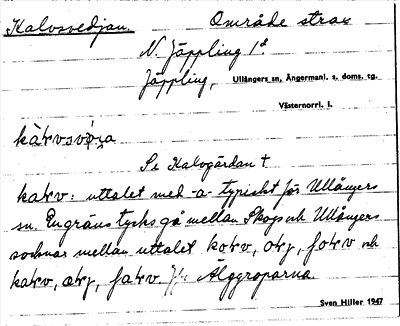 Kalvsvedjan. Område strax
N. Jäppling 1ª
Jäppling, Ullångers sn, Ångermanl. s. doms. tg.
Västernorrl. l.
Se Kalvgärdan †
kaɫv: uttalet med -a- typiskt för Ullångers
sn. En gräns tycks gå mellan Skogs och Ullångers
socknar mellan uttalet koɫv, oɫg, foɫv och
kaɫv, aɫg, faɫv. Jfr Älggroparna.
Sven Hiller 1947